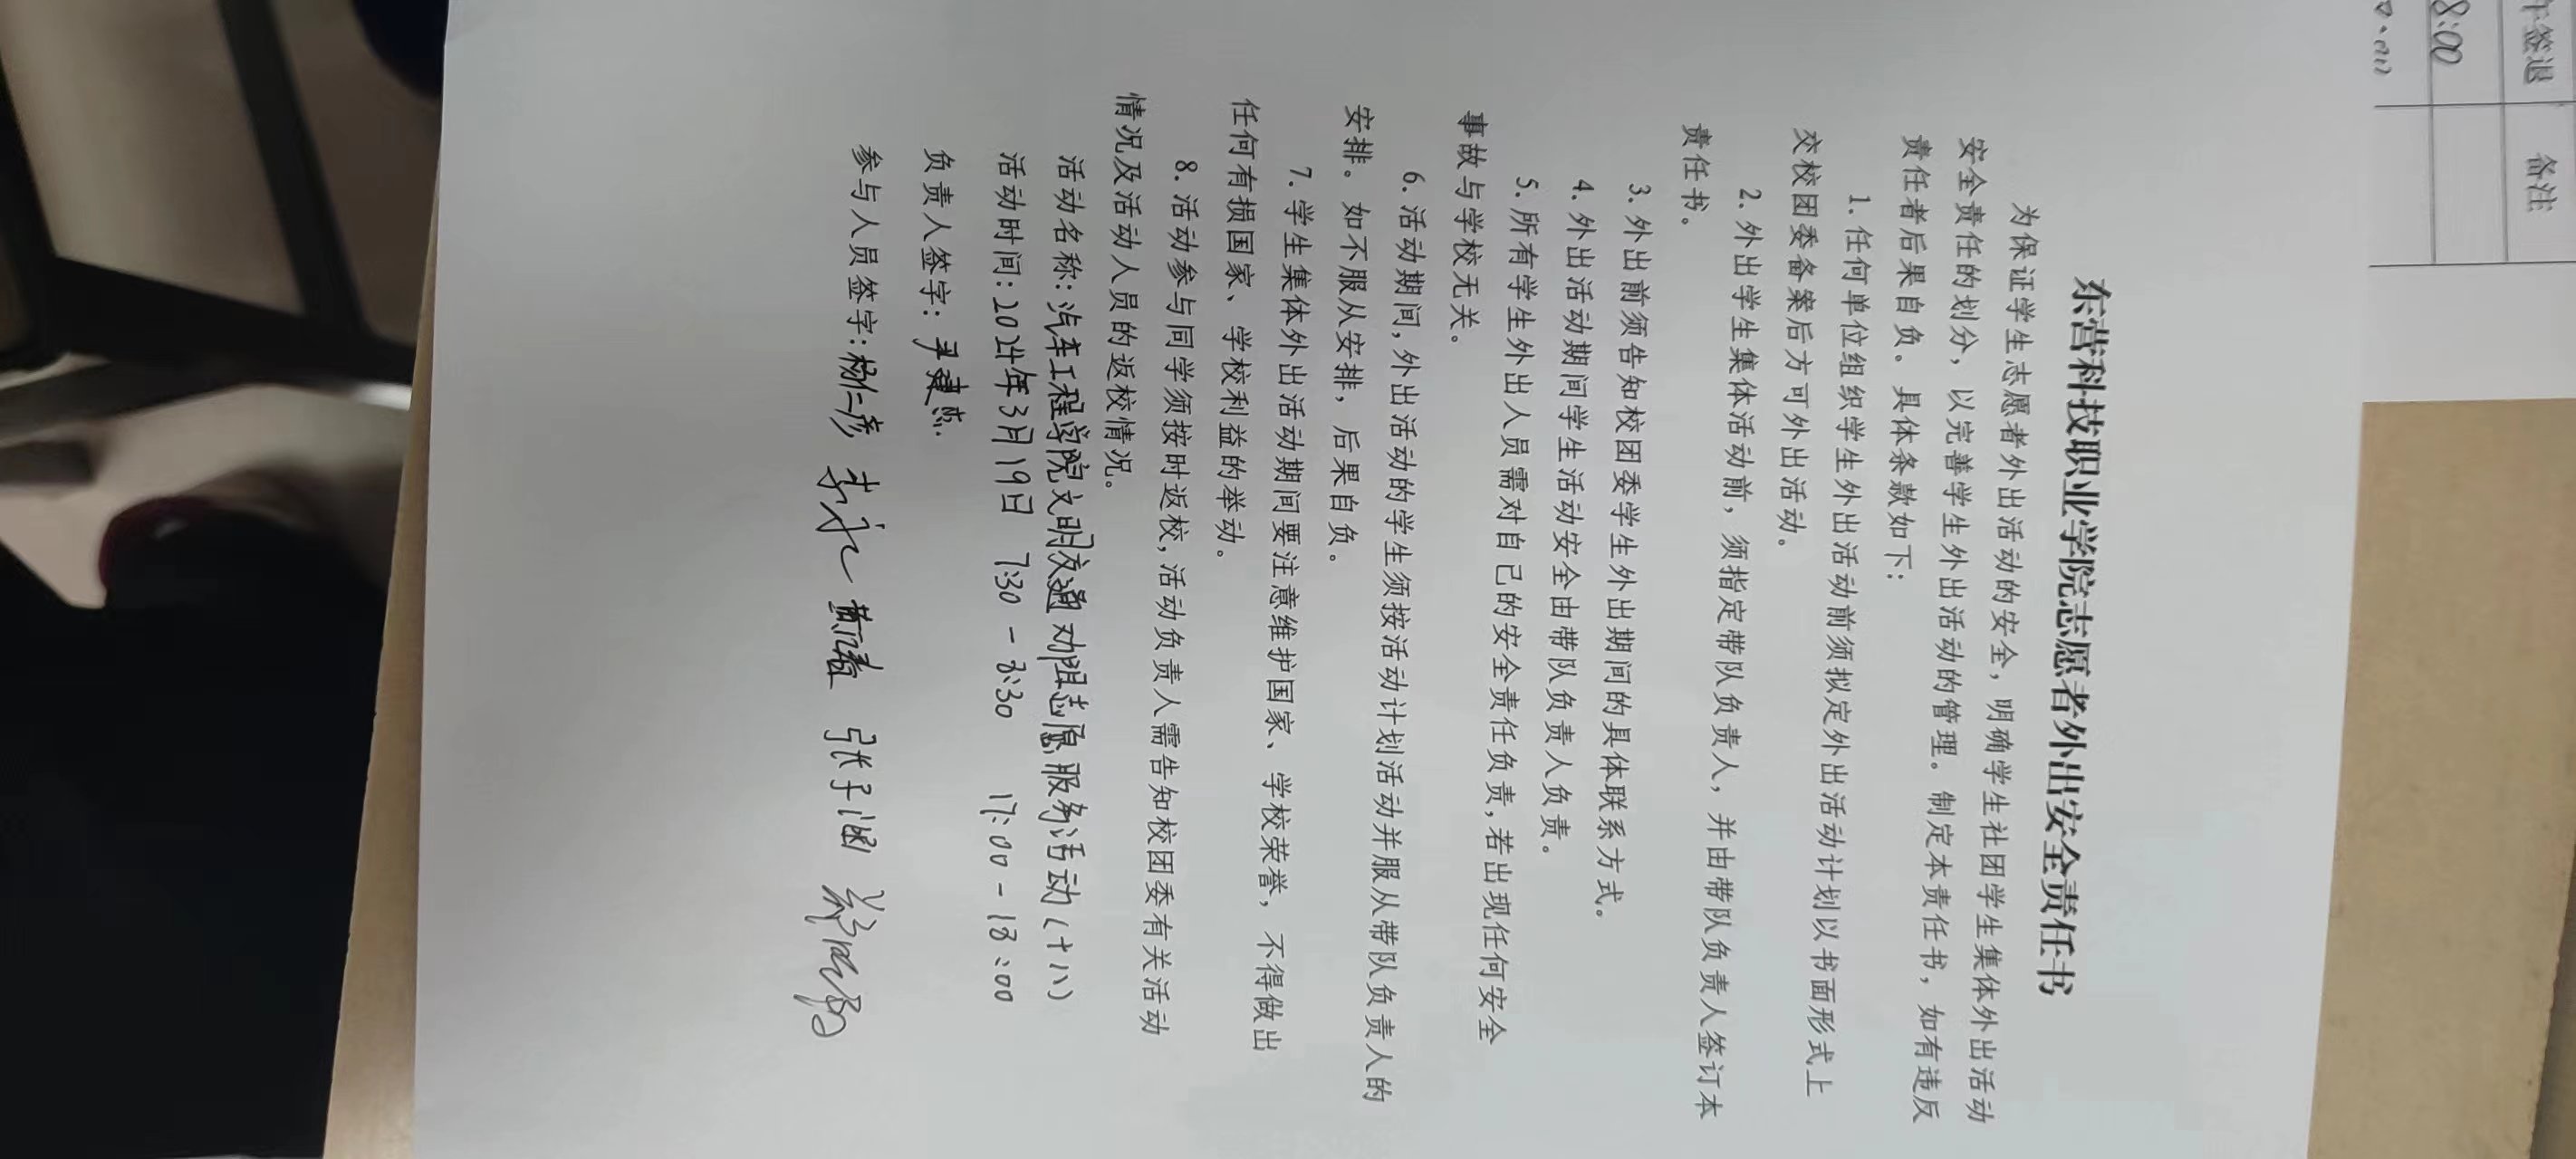 东营科技职业学院志愿者外出安全责任书
为保证学生志愿者外出活动的安全，明确学生社团学生集体外出活动
安全责任的划分，以完善学生外出活动的管理。制定本责任书，如有违反
责任者后果自负。具体条款如下：
1.任何单位组织学生外出活动前须拟定外出活动计划以书面形式上
交校团委备案后方可外出活动。
2.外出学生集体活动前，须指定带队负责人，并由带队负责人签订本
责任书。
3.外出前须告知校团委学生外出期间的具体联系方式。
4.外出活动期间学生活动安全由带队负责人负责。
5.所有学生外出人员需对自己的安全责任负责，若出现任何安全
事故与学校无关。
6.活动期间，外出活动的学生须按活动计划活动并服从带队负责人的
安排。如不服从安排，后果自负。
7.学生集体外出活动期间要注意维护国家、学校荣誉，不得做出
任何有损国家、学校利益的举动。
8.活动参与同学须按时返校，活动负责人需告知校团委有关活动
情况及活动人员的返校情况。
活动名称：汽车工程学院文明交通劝阻志愿服务活动（十八）
活动时间：2024年3月19日 7:30-8:30 17:00-18:00
负责人签字：尹建杰
参与人员签字：杨仁彦 张子涵
签退
备注
8:00